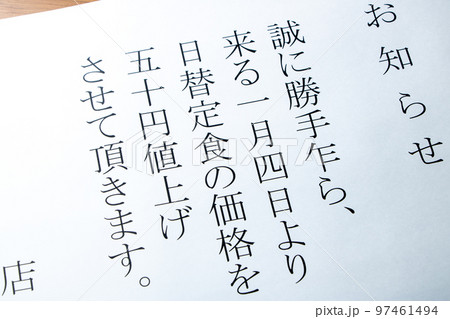 お知らせ
誠に勝手乍ら、
来る一月四日より
日替定食の価格を
五十円値上げ
させて頂きます。
店
97461494